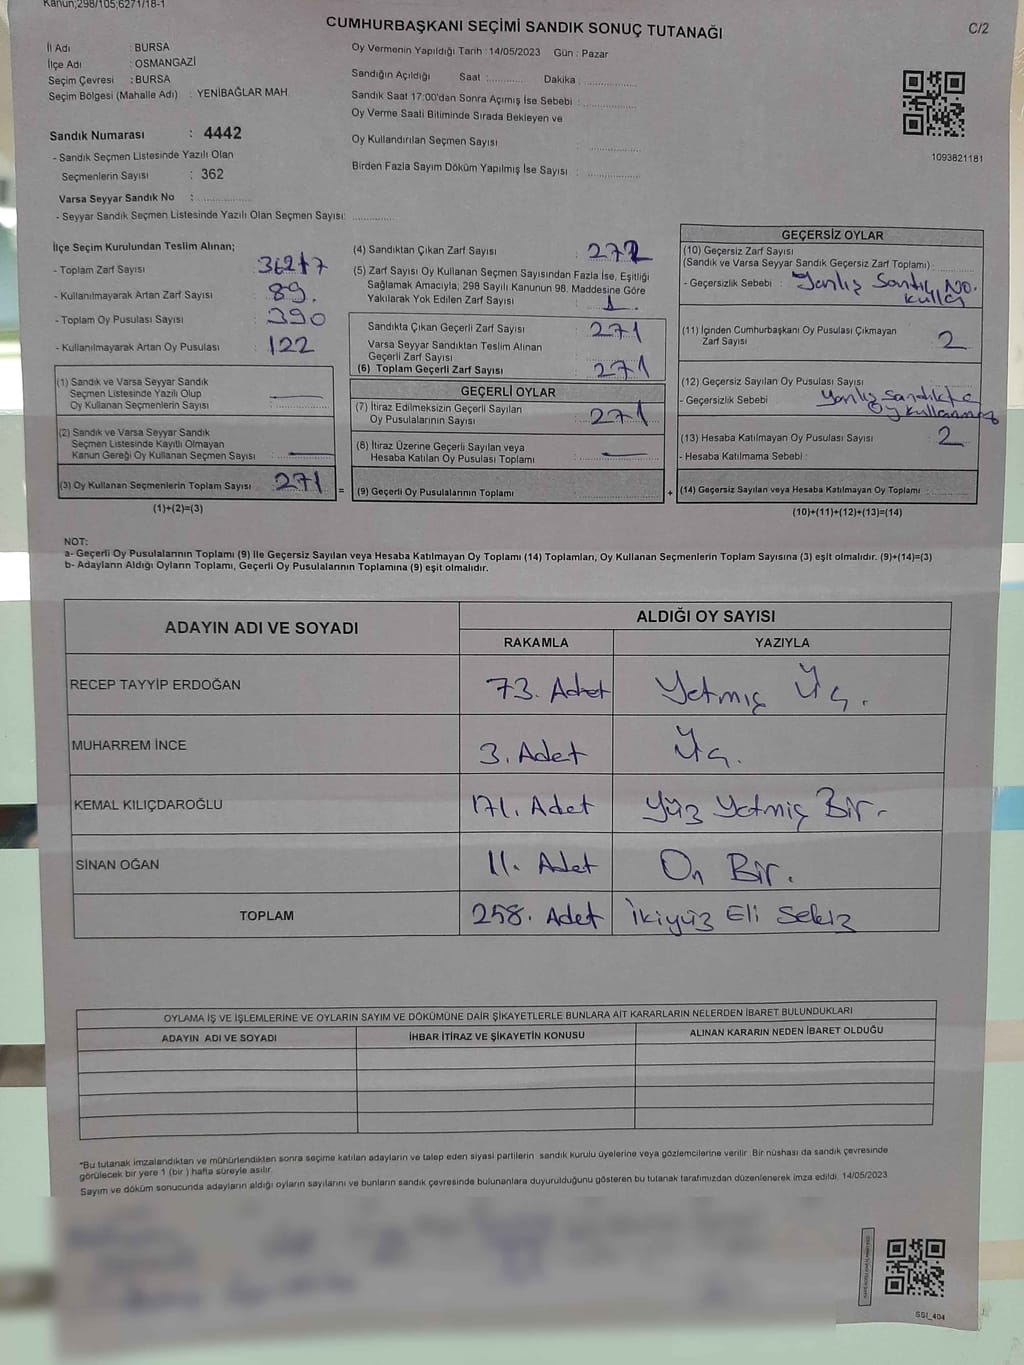 Kanun;298/105;6271/18-1
CUMHURBAŞKANI SEÇİMİ SANDIK SONUÇ TUTANAĞI
C/2
İl Adı : BURSA
İlçe Adı : OSMANGAZİ
Seçim Çevresi : BURSA
Seçim Bölgesi (Mahalle Adı) : YENİBAĞLAR MAH.
Oy Vermenin Yapıldığı Tarih : 14/05/2023 Gün : Pazar
Sandığın Açıldığı Saat :............ Dakika :................
Sandık Saat 17:00'dan Sonra Açımış İse Sebebi :................
Oy Verme Saati Bitiminde Sırada Bekleyen ve
Oy Kullandırılan Seçmen Sayısı : ................
Birden Fazla Sayım Döküm Yapılmış İse Sayısı : ................
1093821181
Sandık Numarası : 4442
- Sandık Seçmen Listesinde Yazılı Olan
Seçmenlerin Sayısı : 362
Varsa Seyyar Sandık No : ................
- Seyyar Sandık Seçmen Listesinde Yazılı Olan Seçmen Sayısı: ............
İlçe Seçim Kurulundan Teslim Alınan;
- Toplam Zarf Sayısı : 362+7
- Kullanılmayarak Artan Zarf Sayısı : 89.
- Toplam Oy Pusulası Sayısı : 390
- Kullanılmayarak Artan Oy Pusulası : 122
(1) Sandık ve Varsa Seyyar Sandık
Seçmen Listesinde Yazılı Olup
Oy Kullanan Seçmenlerin Sayısı : —
(2) Sandık ve Varsa Seyyar Sandık
Seçmen Listesinde Kayıtlı Olmayan
Kanun Gereği Oy Kullanan Seçmen Sayısı : —
(3) Oy Kullanan Seçmenlerin Toplam Sayısı : 271
(1)+(2)=(3)
(4) Sandıktan Çıkan Zarf Sayısı : 272
(5) Zarf Sayısı Oy Kullanan Seçmen Sayısından Fazla İse, Eşitliği
Sağlamak Amacıyla; 298 Sayılı Kanunun 98. Maddesine Göre
Yakılarak Yok Edilen Zarf Sayısı : 1.
Sandıkta Çıkan Geçerli Zarf Sayısı : 271
Varsa Seyyar Sandıktan Teslim Alınan
Geçerli Zarf Sayısı :
(6) Toplam Geçerli Zarf Sayısı : 271
GEÇERLİ OYLAR
(7) İtiraz Edilmeksizin Geçerli Sayılan
Oy Pusulalarının Sayısı : 271
(8) İtiraz Üzerine Geçerli Sayılan veya
Hesaba Katılan Oy Pusulası Toplamı : —
= (9) Geçerli Oy Pusulalarının Toplamı : ................
GEÇERSİZ OYLAR
(10) Geçersiz Zarf Sayısı
(Sandık ve Varsa Seyyar Sandık Geçersiz Zarf Toplamı) :
- Geçersizlik Sebebi : Yanlız Sandık No.
(11) İçinden Cumhurbaşkanı Oy Pusulası Çıkmayan
Zarf Sayısı : 2
(12) Geçersiz Sayılan Oy Pusulası Sayısı :
- Geçersizlik Sebebi : Yanlız Sandıkta
Oy kullanmış
(13) Hesaba Katılmayan Oy Pusulası Sayısı : 2
- Hesaba Katılmama Sebebi :
+ (14) Geçersiz Sayılan veya Hesaba Katılmayan Oy Toplamı : ............
(10)+(11)+(12)+(13)=(14)
NOT:
a- Geçerli Oy Pusulalarının Toplamı (9) ile Geçersiz Sayılan veya Hesaba Katılmayan Oy Toplamı (14) Toplamları, Oy Kullanan Seçmenlerin Toplam Sayısına (3) eşit olmalıdır. (9)+(14)=(3)
b- Adayların Aldığı Oyların Toplamı, Geçerli Oy Pusulalarının Toplamına (9) eşit olmalıdır.
ADAYIN ADI VE SOYADI
ALDIĞI OY SAYISI
RAKAMLA YAZIYLA
RECEP TAYYİP ERDOĞAN 73. Adet Yetmiş Üç.
MUHARREM İNCE 3. Adet Üç.
KEMAL KILIÇDAROĞLU 171. Adet Yüz Yetmiş Bir.
SİNAN OĞAN 11. Adet On Bir.
TOPLAM 258. Adet İkiyüz Eli Sekiz
OYLAMA İŞ VE İŞLEMLERİNE VE OYLARIN SAYIM VE DÖKÜMÜNE DAİR ŞİKAYETLERLE BUNLARA AİT KARARLARIN NELERDEN İBARET BULUNDUKLARI
ADAYIN ADI VE SOYADI İHBAR İTİRAZ VE ŞİKAYETİN KONUSU ALINAN KARARIN NEDEN İBARET OLDUĞU
*Bu tutanak imzalandıktan ve mühürlendikten sonra seçime katılan adayların ve talep eden siyasi partilerin sandık kurulu üyelerine veya gözlemcilerine verilir. Bir nüshası da sandık çevresinde
görülecek bir yere 1 (bir ) hafta süreyle asılır.
Sayım ve döküm sonucunda adayların aldığı oyların sayılarını ve bunların sandık çevresinde bulunanlara duyurulduğunu gösteren bu tutanak tarafımızdan düzenlenerek imza edildi. 14/05/2023
SSI_404